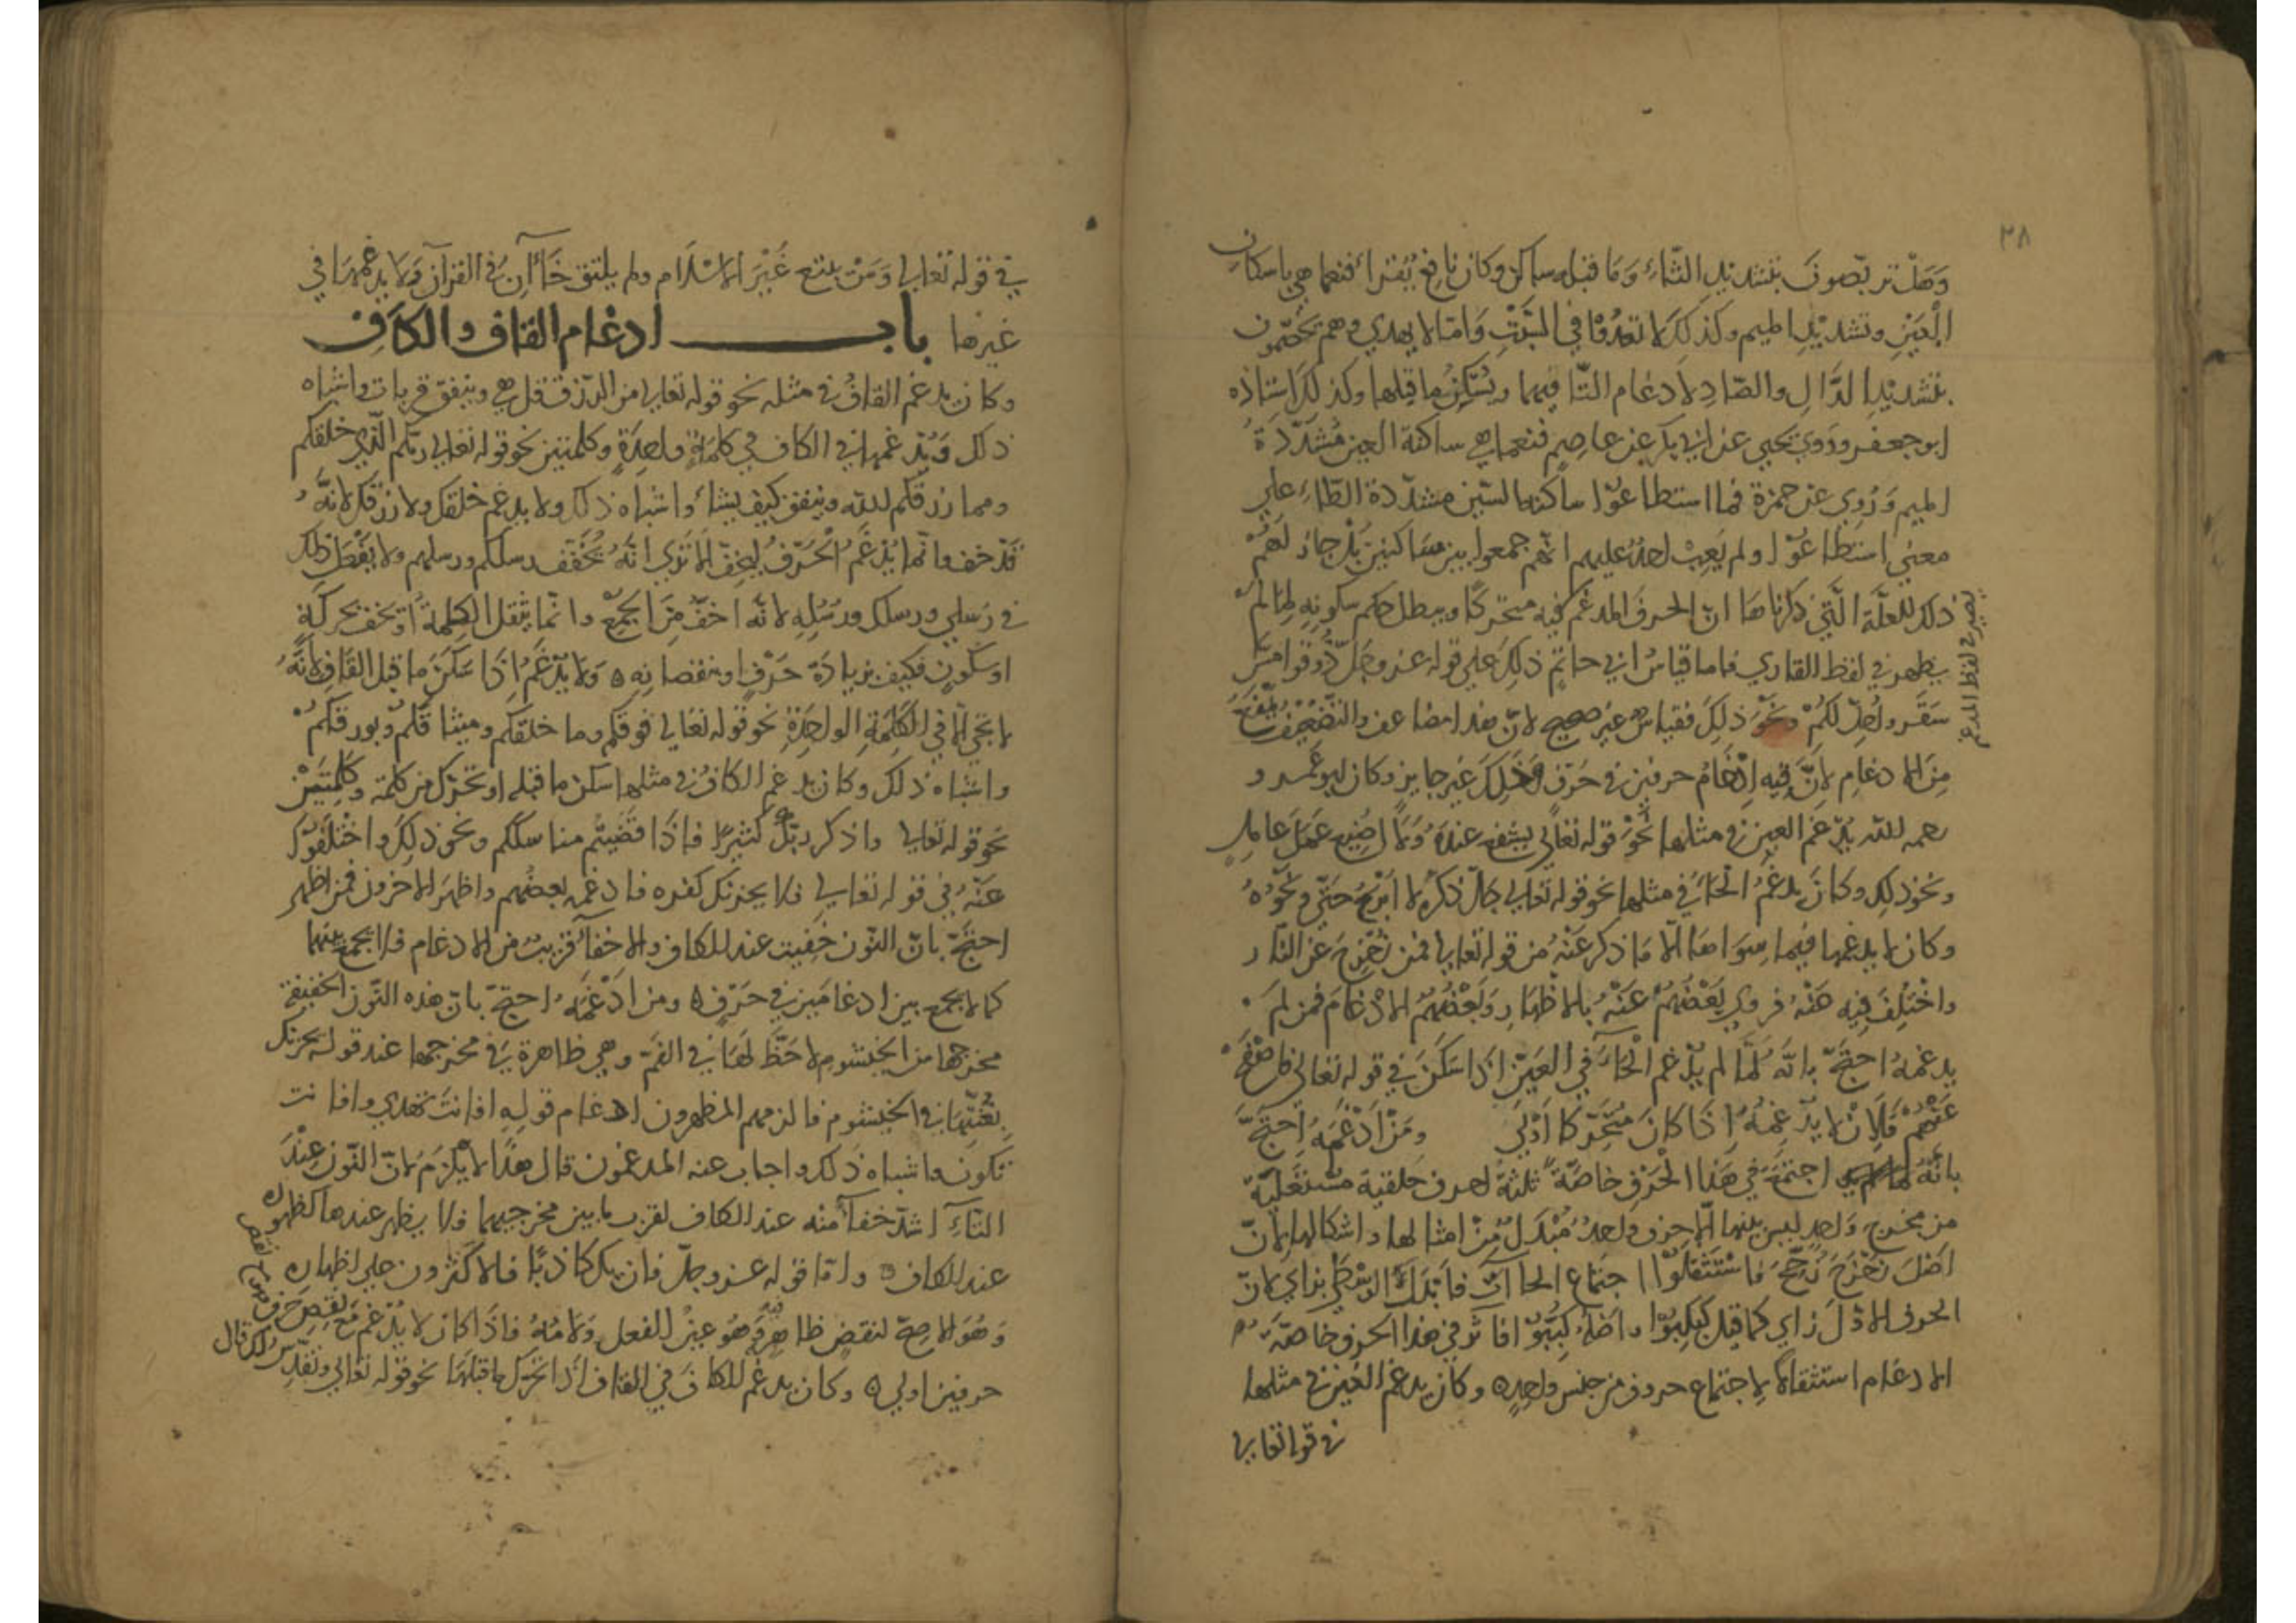 ٢٨
وَهَلْ تربّصونَ بتشديد التّاءِ وَمَا قبله ساكن وكان نافع يُقرأ فنعما هي باسكان
العَيْن وتشديْدِ الميم وكذلكَ لا تعْدُّوا في السَّبْتِ وَامّا لا يهدي وهم يخصّمون
بتشديْدِ الدَّالِ والصّادِ لادغام التّا فيهما ويُسَكِّنُ ما قبلها وكذلكَ استاذه
ابو جعفر وروي يحيي عن ابي بكر عن عاصِمٍ فنعما هي ساكنة العين مُشَدَّدَةُ
الميم وَرُوِي عن حمزة فما استطاعوْا ساكنة السّين مشدّدة الطّاءِ علي
معني استطاعوْا ولم يَعِبْ احدٌ عليهم انّهم جمعوا بين ساكنين بَلْ جازَ لَهُمْ
ذلك للعلّة الّتي ذكرناهَا انّ الحرفَ المدغم فيه متحركًا ويبطل حكم سكونِهِ لِمَا لمْ
يظهر في لفظ القاري فاما قياسُ ابي حاتِمٍ ذلِكَ علي قوله عز وجلّ ذُوقوا مسَّ
يصير في لفظ المدغم
سَقَر واُحِلّ لكُمْ ونَحْوَ ذلِكَ فقياسٌ غير صحيح لانّ هذا مضاعف والتّضْعِيْفُ يَمْنَعُ
مِنَ الادغامِ لِانَّ فِيه اِدْغامُ حرفين في حَرْفٍ وَذلِكَ غير جايز وكان ابو عَمرو
رحمه اللّه يُدْغم العين في مثلها نَحْوَ قوله تعَالي يشفع عنده وَلَا اضِيع عَمَلَ عَامِلٍ
ونحو ذلِك وكانَ يدغمُ الحَاءَ في مثلها نحو قوله تعالي جلّ ذكرُهُ لا اَبْرَحُ حَتّي ونحْوُهُ
وكان لا يدغمها فيما سِوَاهَا الّا مَا ذكر عَنْهُ من قوله تعالي فمن زُحْزِحَ عَنِ النّار
واخْتُلِفَ فِيه عَنْهُ فروي بَعْضُهُمْ عَنْهُ بالاظهَارِ وَبَعْضُهُمْ الادْغامَ فمن لمَ
يدغمْهُ احتجّ بانّه لَمَّا لم يُدْغم الحَآءَ في العَيْن اذا سَكَنَ في قوله تعَالي فاصْفَحْ
عَنْهُمْ فَلِاَنْ لا يدْغِمَهُ اِذَا كانَ مُتَحَرِّكًا اَوْلي ومَنْ ادْغَمَهُ احتجّ
بانّه اجتمَعَ في هَذا الحَرْفِ خاصّةً ثلثةُ احرف حلقية مُسْتعْلِيَة
من مخرج وَاحدٍ ليس بينها الّا حرف واحدٌ مُبْدَلٌ مِنْ امثالها واشكالها لانّ
اصْلَ زحْزحَ زحّحَ فاسْتَثْقَلُوْا اجتماع الحاآت فابْدَلَتْ الوسْطي بزاي لانّ
الحرف الاوّلَ زاي كما قيل كبكِبُوْا واصْلُهُ كُبِّبُوْا فاثر في هذا الحرف خاصّة
الادغام استثقالًا لِاجتماع حروف من جنس واحدٍ وكان يدغم الغين في مثلها
في قوله تعالي
في قوله تعالي وَمَنْ يبتغ غَيْرَ الاسْلَام ولم يلتق خَآآنِ في القرآن وَلا يدغمها في
غيرها بابـــــــ ادغام القاف والكاف
وكان يدغم القافَ في مثله نحو قوله تعالي من الرزق قل هي وينفق قربات واشباه
ذلك وَيُدْغمها في الكاف في كلمةٍ واحِدَةٍ وكلمتين نحو قوله تعالي ربكم الّذي خلقكم
ومما رزقكم اللّه وينفق كيف يشاءُ واشباه ذلك ولا يدغم خلقك ولا رزقك لانّهُ
قَدْ خف وانّما يُدْغَمُ الحَرْفُ ليخفّ الا تري انّهُ يُخَفّف رسلكم ورسلهم ولا يَفْعل ذلك
في رُسلي ورسلك ورُسُلِهِ لانّه اخفّ مِنَ الجَمْع وانّما يثقل الكلمة اَوْ يخف بحركةٍ
اوسكُونٍ فكيف بزيادَة حَرْفٍ اونقصانِهِ ه وَلا يدْغَمُ اِذَا سَكَنَ ما قبل القَافِ لانّهُ
لا يجيْ الّا في الكَلِمَةِ الواحِدَةِ نحو قوله تعَالي فوقكم وما خلقكم وميثاقكم وبورقكُمْ
واشباه ذلك وكان يدغم الكافَ في مثلها سكن ما قبله او تحرّك من كلمة وكلِمَتَيْنِ
نحو قوله تعالي واذكر ربّكَ كثيرًا فاذَا قضَيْتُم مناسككم ونحو ذلِكَ واخْتلَفُوْا
عَنْهُ في قوله تعالي فلا يحزنك كفره فادغمه بعضُهم واظهرَ الاخرون فمن اظهر
احتجّ بانّ النّون خفيت عند الكاف والاخفآءُ قريبٌ من الادغام فلا يجمع بينهما
كما لا يجمع بين ادغامَيْن في حَرْفٍ ه ومن ادْغَمَهُ احتجّ بانّ هذه النّون الخفيفة
مخرجها من الخيشومِ لا حَظّ لهَا في الفَم وهي ظاهرة في مخرجها عند قوله يحزنك
بغُنّتِهَا في الخيشوم فالزمهم المظهرون ادغام قولِهِ افانتَ تهدي وافانت
تكون واشباه ذلك واجاب عنه المدغمون قال هذا لا يلْزمُ لانّ النّون عِنْدَ
التّآءِ اشدّ خفآءً منه عند الكاف لقرب ما بين مخرجيهما فلا يظهر عندها كظهوره
عند الكاف ه وامّا قوله عز وجلّ فان يك كاذبًا فالاكثرون علي اظهاره
وَهُوَ الاصحّ لنقصٍ ظاهرٍ وَهُوَ عينُ الفعل ولامُهُ فاذَا كان لا يُدْغم مَعَ نقصِ حَرفٍ
حرفين اولي ه وكان يدغم الكافَ في القاف اذا تحرّك ما قبلهَا نحو قوله تعالي ونقدّس لك قال